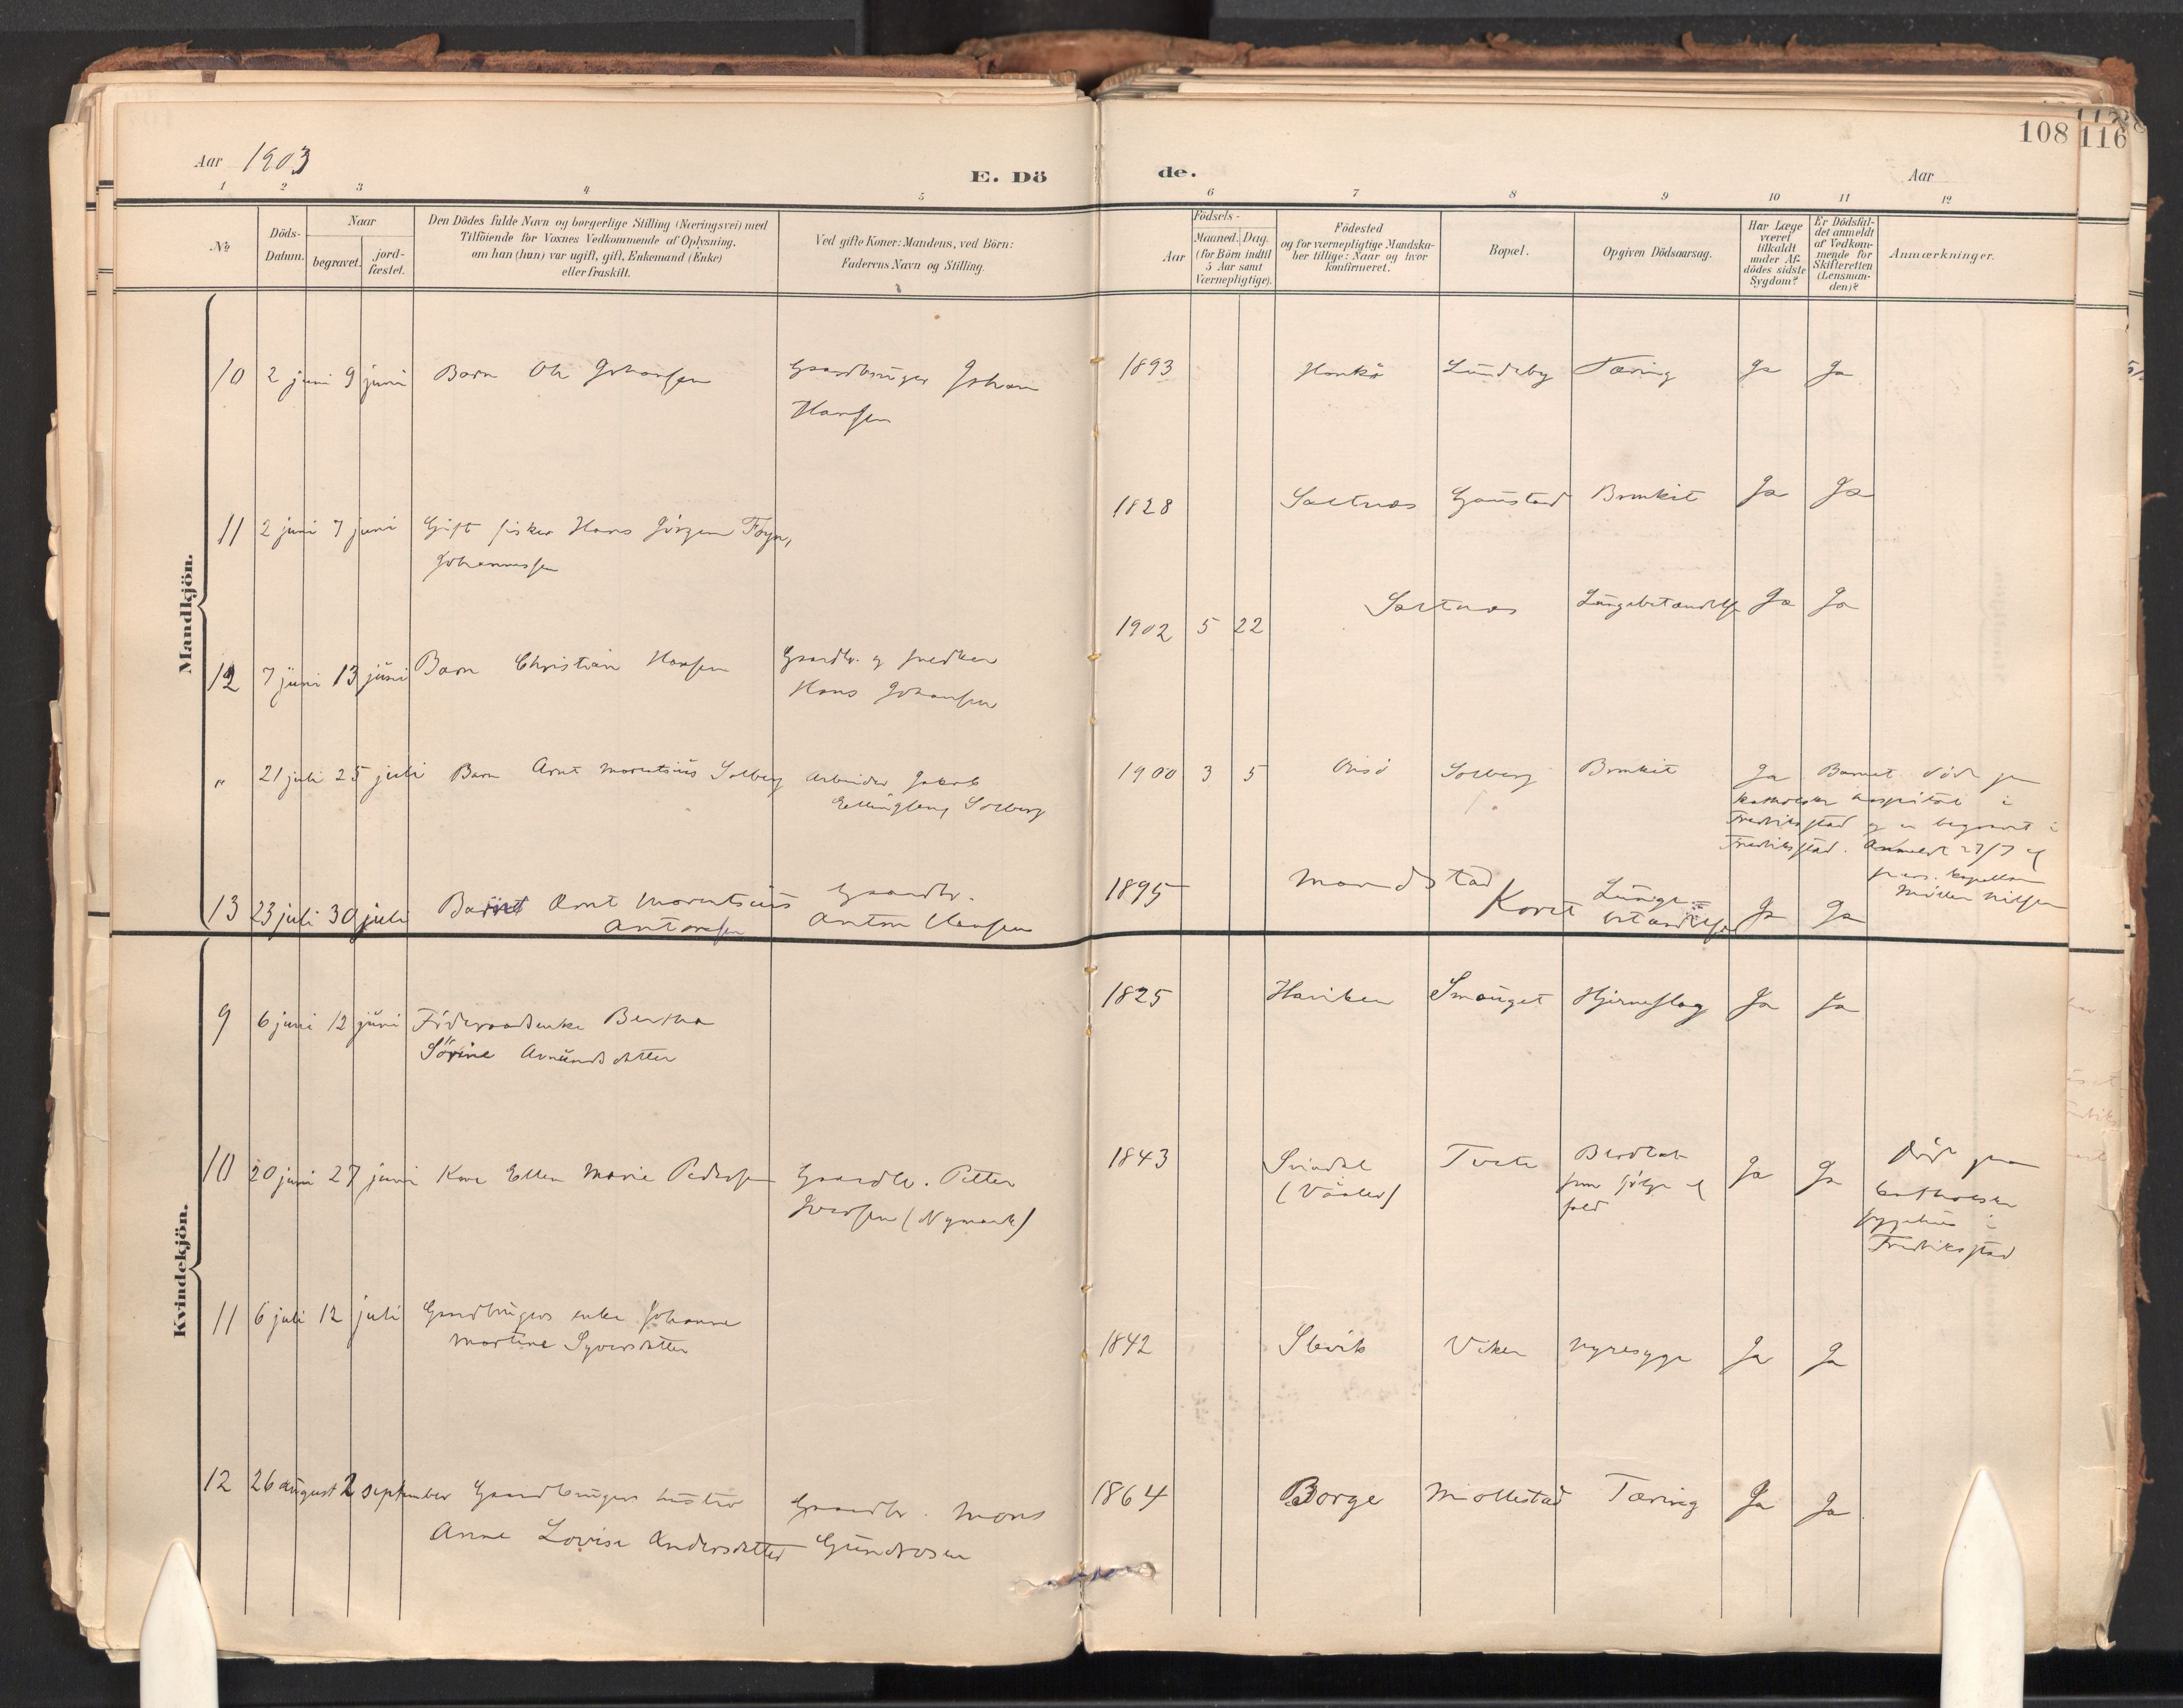 108
116
Aar 1903
E. Dö
de.
Aar
1 2 3 4 5 6 7 8 9 10 11 12
№
Döds-
Datum.
Naar
begravet.
jord-
fæstet.
Den Dödes fulde Navn og borgerlige Stilling (Næringsvei) med
Tilföiende for Voxnes Vedkommende af Oplysning,
om han (hun) var ugift, gift, Enkemand (Enke)
eller fraskilt.
Ved gifte Koner: Mandens, ved Börn:
Faderens Navn og Stilling.
Födsels-
Aar
Maaned.
Dag.
(for Börn indtil
5 Aar samt
Værnepligtige).
Födested
og for værnepligtige Mandska-
ber tillige: Naar og hvor
konfirmeret.
Bopæl.
Opgiven Dödsaarsag.
Har Læge
været
tilkaldt
under Af-
dödes sidste
Sygdom?
Er Dödsfal-
det anmeldt
af Vedkom-
mende for
Skifteretten
(Lensman-
den)?
Anmærkninger.
Mandkjön.
10 2 juni 9 juni Barn Ole Johansen Gaardbruger Johan
Hansen
1893 Hankø Lundeby Tæring Ja Ja
11 2 juni 7 juni Gift fisker Hans Jörgen Föyn,
Johannessen
1828 Saltnæs Gaustad Bronkit Ja Ja
12 7 juni 13 juni Barn Christian Hansen Gaardbr. og snedker
Hans Johansen
1902 5 22 Saltnæs Lungebetændelse Ja Ja
" 21 juli 25 juli Barn Arnt Morentsius Solberg Arbeider Jakob
Ellingsen, Solberg
1900 3 5 Onsö Solberg Bronkit Ja Barnet döde paa
katholske hospital i
Fredriksstad og er begravet i
Fredriksstad. Anmeldt 27/7 af
pers. kapellan
Möller Nilsen
13 23 juli 30 juli Barnet Arnt Morentsius
Antonsen
Gaardbr.
Anton Hansen
1895 Mondstad Kort Lunge-
betændelse Ja Ja
Kvindekjön.
9 6 juni 12 juni Föderaadsenke Bertha
Sörine Arnundsdatter
1825 Hauken Smauget Hjerneslag Ja Ja
10 20 juni 27 juni Kone Ellen Marie Pedersen Gaardbr. Petter
Iversen (Nymark)
1843 Svindal
(Vaaler)
Tvete Blodtab
som fölge af
fald
Ja Ja Död paa
katholske
sygehus i
Fredriksstad
11 6 juli 12 juli Gaardbrugers enke Johanne
Martine Syversdatter
1842 Slevik Viker Nyresyge Ja Ja
12 26 august 2 september Gaardbrugers hustru
Anne Lovise Andersdatter
Gaardbr. Mons
Gundrosen
1864 Borge Mollestad Tæring Ja Ja